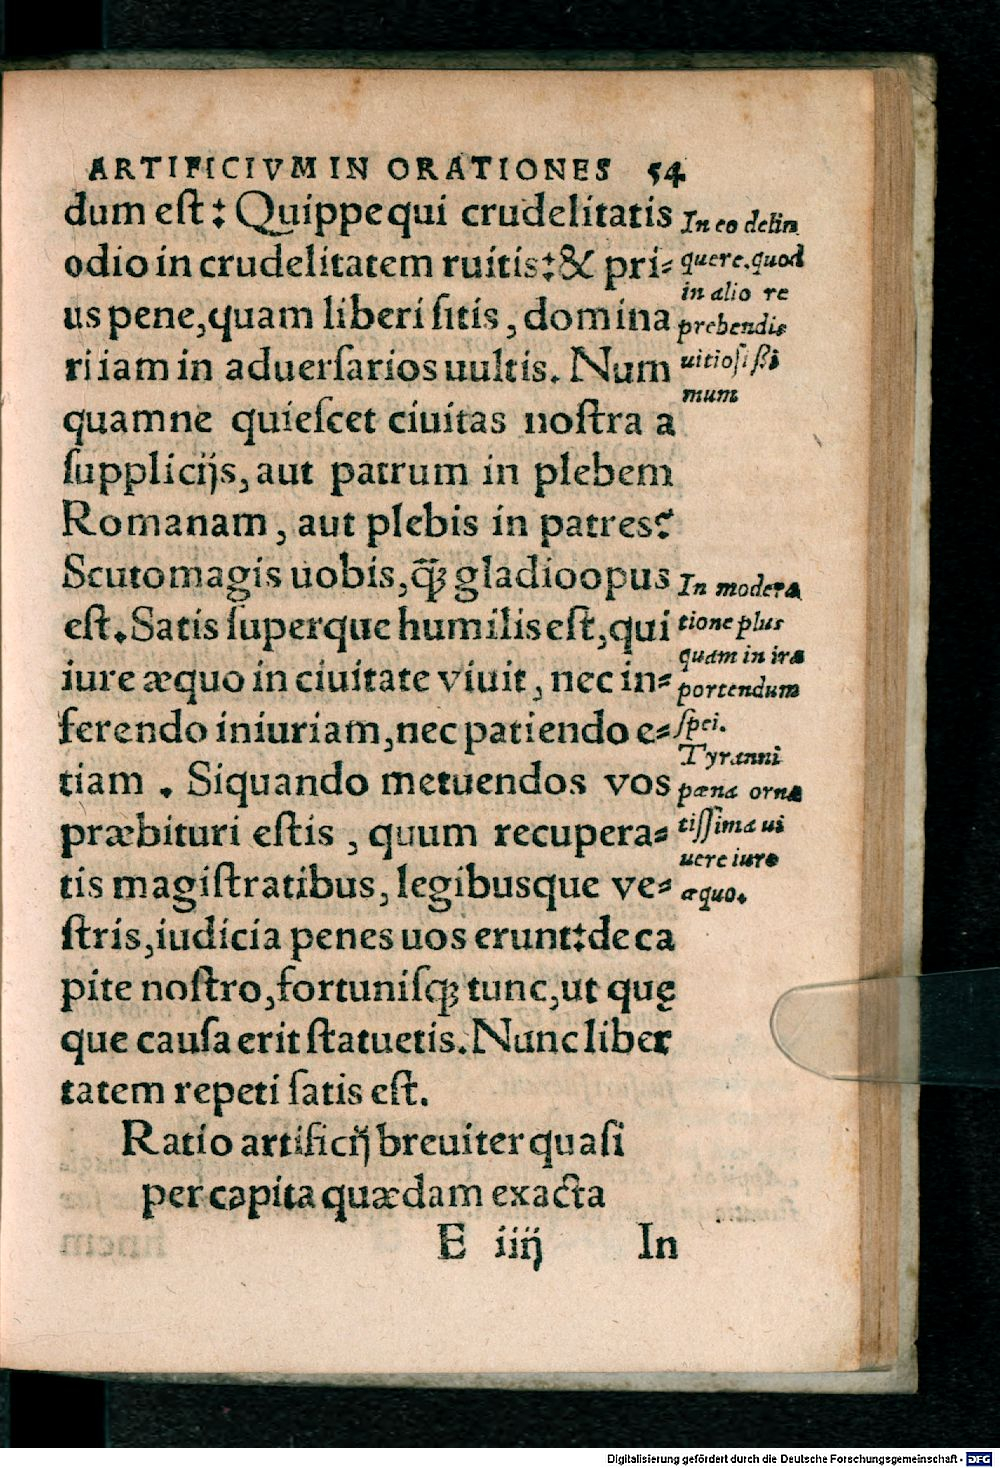 ARTIFICIVM IN ORATIONES 54
dum est: Quippe qui crudelitatis
odio in crudelitatem ruitis: & pri-
us pene, quam liberi ſitis, domina
ri iam in aduerſarios uultis. Num
quamne quieſcet ciuitas noſtra a
ſupplicijs, aut patrum in plebem
Romanam, aut plebis in patres?
Scuto magis uobis, q̃ꝫ gladio opus
eſt. Satis ſuperque humilis eſt, qui
iure æquo in ciuitate viuit, nec in-
ferendo iniuriam, nec patiendo e-
tiam. Siquando metuendos vos
præbituri eſtis, quum recupera-
tis magiſtratibus, legibusque ve-
ſtris, iudicia penes uos erunt: de ca
pite noſtro, fortuniſqꝫ tunc, ut quę
que cauſa erit ſtatuetis. Nunc liber
tatem repeti ſatis eſt.
Ratio artificij breuiter quaſi
per capita quædam exacta
E iiij In
In eo delin
quere, quod
in alio re
prehendis
uitioſiſſi
mum
In modera
tione plus
quam in ira
portendum
ſpei.
Tyranni
pæna orna
tiſſima ui
uere iure
æquo.
Digitalisierung gefördert durch die Deutsche Forschungsgemeinschaft - DFG